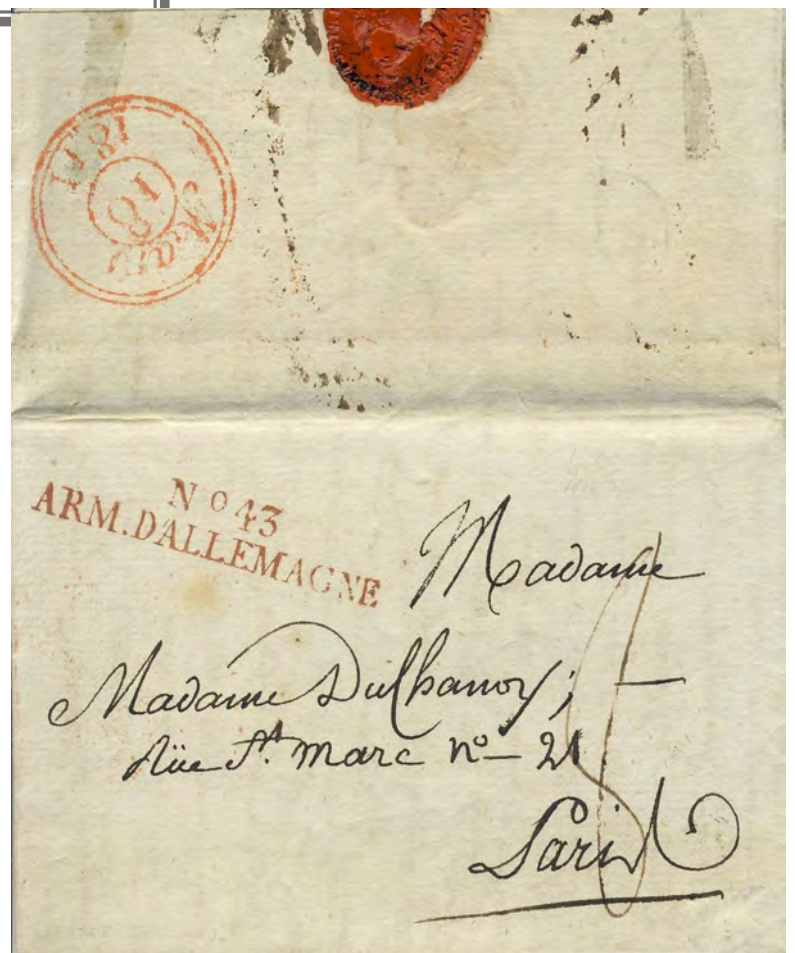 Mars
18
1811
No 43
ARM.DALLEMAGNE
Madame
Madame Dulhanoy;
Rüe St. marc no - 21
Paris